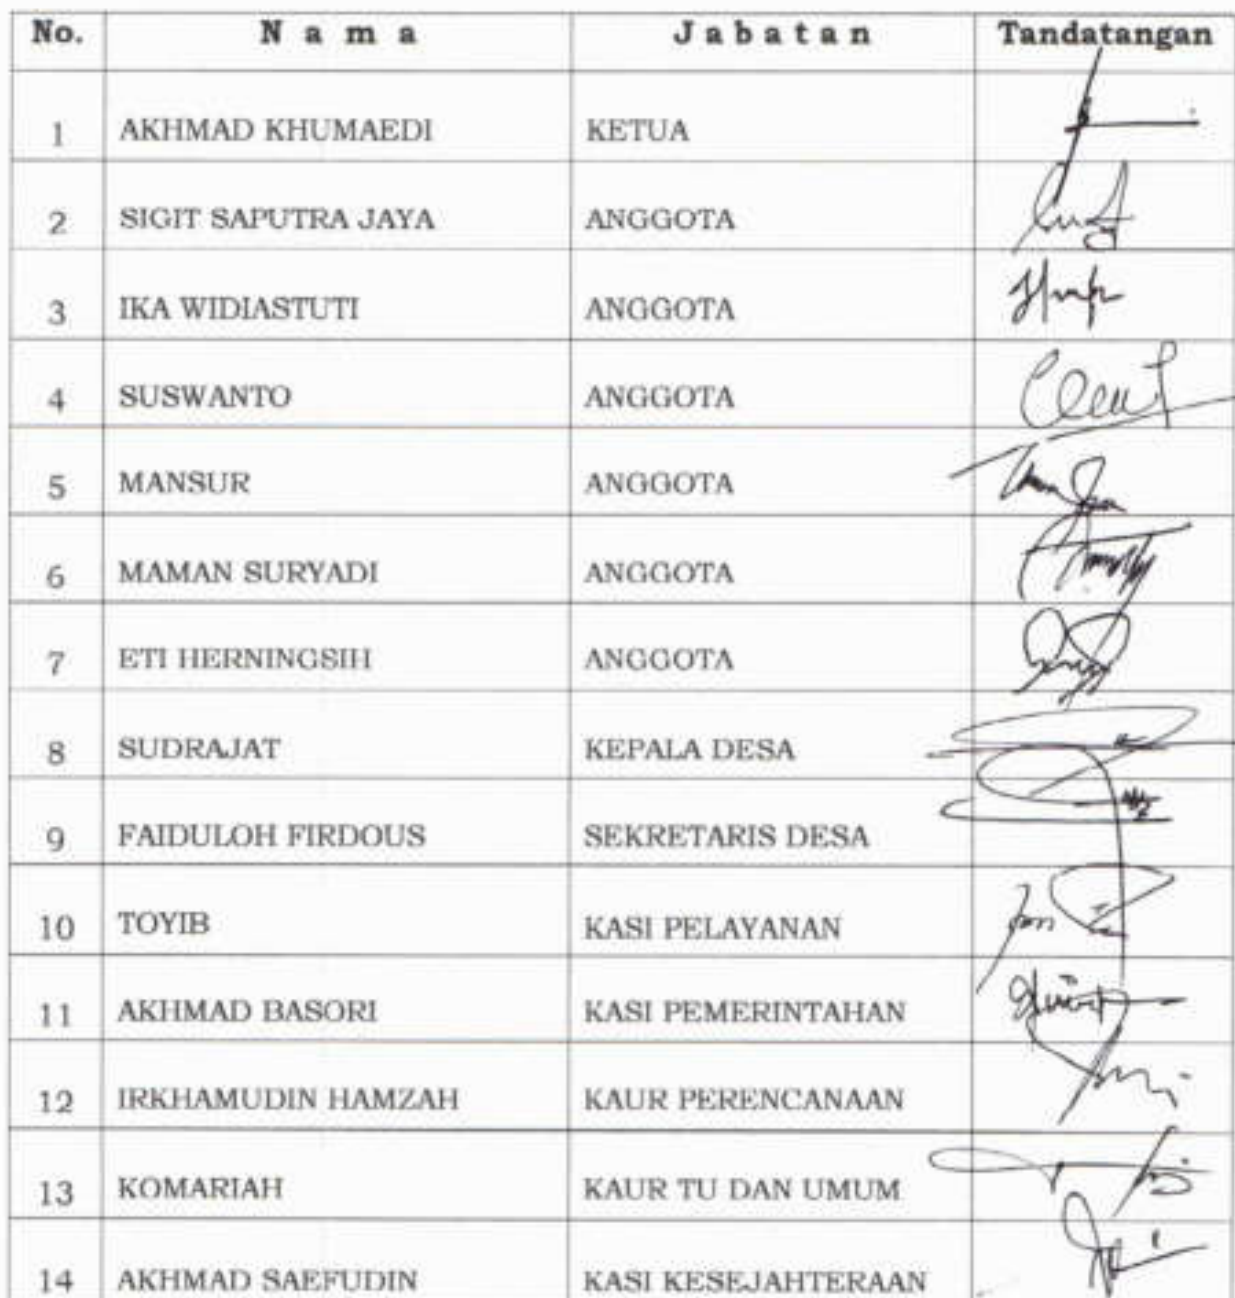 No. N a m a J a b a t a n Tandatangan
1 AKHMAD KHUMAEDI KETUA
2 SIGIT SAPUTRA JAYA ANGGOTA
3 IKA WIDIASTUTI ANGGOTA
4 SUSWANTO ANGGOTA
5 MANSUR ANGGOTA
6 MAMAN SURYADI ANGGOTA
7 ETI HERNINGSIH ANGGOTA
8 SUDRAJAT KEPALA DESA
9 FAIDULOH FIRDOUS SEKRETARIS DESA
10 TOYIB KASI PELAYANAN
11 AKHMAD BASORI KASI PEMERINTAHAN
12 IRKHAMUDIN HAMZAH KAUR PERENCANAAN
13 KOMARIAH KAUR TU DAN UMUM
14 AKHMAD SAEFUDIN KASI KESEJAHTERAAN